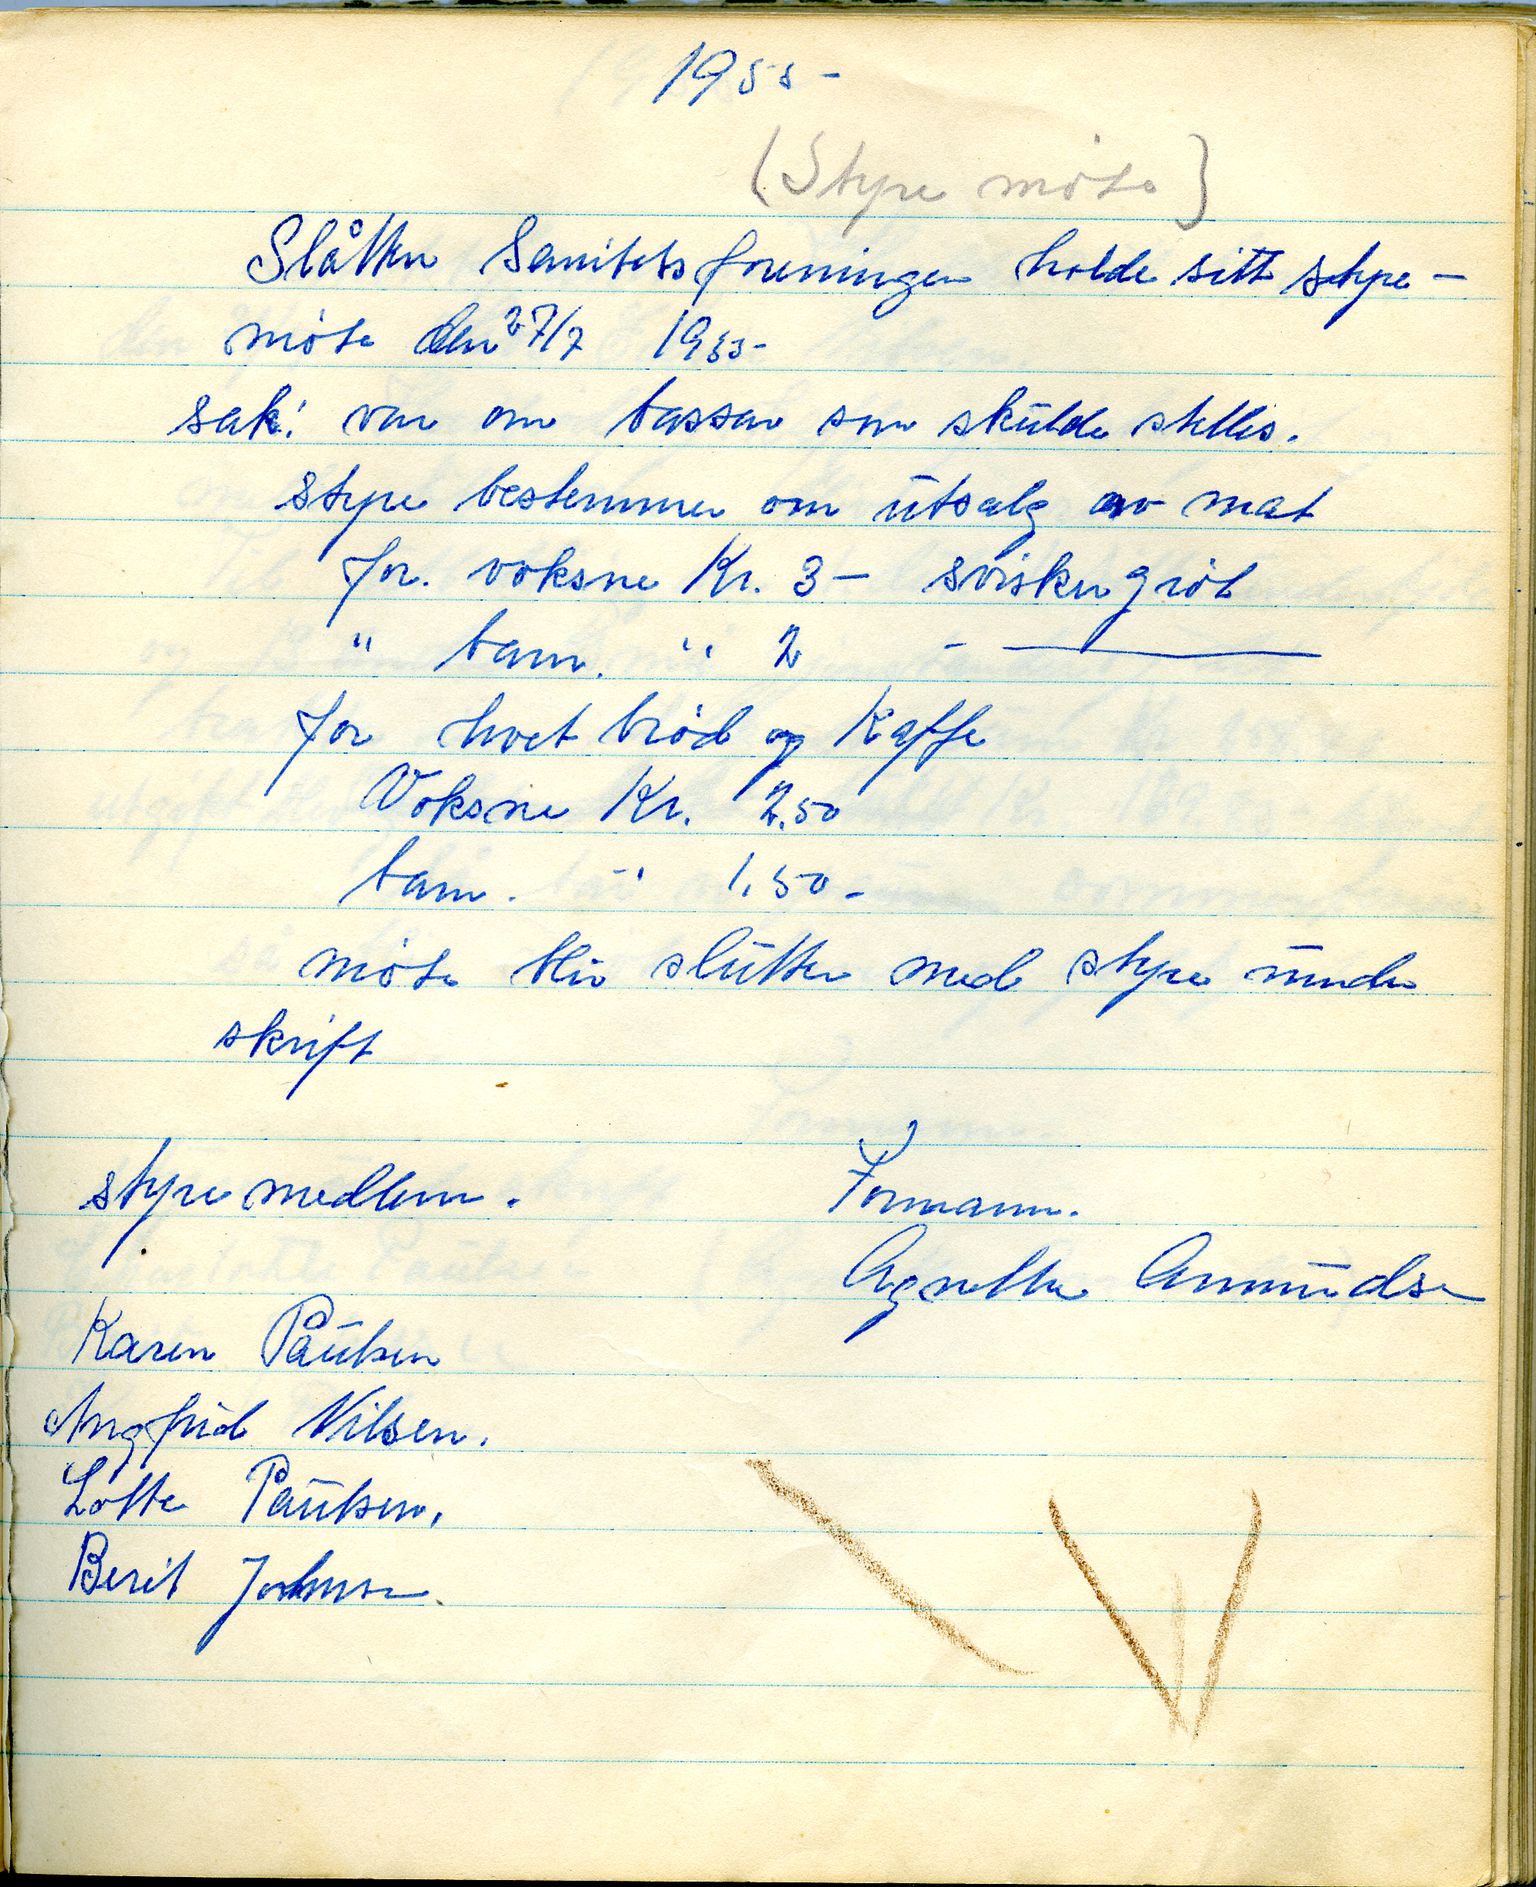 1955-
(Styre möte)
Slåtten Sanitetsforeningen holde sitt styre-
möte den 27/7 1955-
sak: var om bassar som skulde stelles.
styre bestemmer om utsalg av mat
for. voksne Kr. 3- sviskegröt
" barn. " 2 - —
for hvet bröd og Kaffe
Voksne Kr. 2,50
barn. " 1,50-
möte bliv slutter med styre under
skrift
styre medlem. Formann.
Agnethe Amundsen
Karen Paulsen
Ingfrid Nilsen.
Lotte Paulsen.
Berit Johnsen.